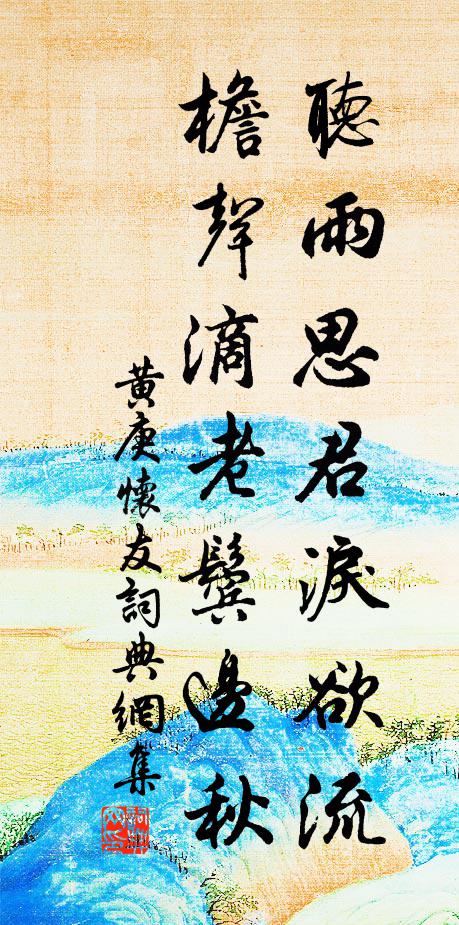 聽雨思君淚欲流
檐聲滴老鬢邊秋
黃庚懷友詞典網集